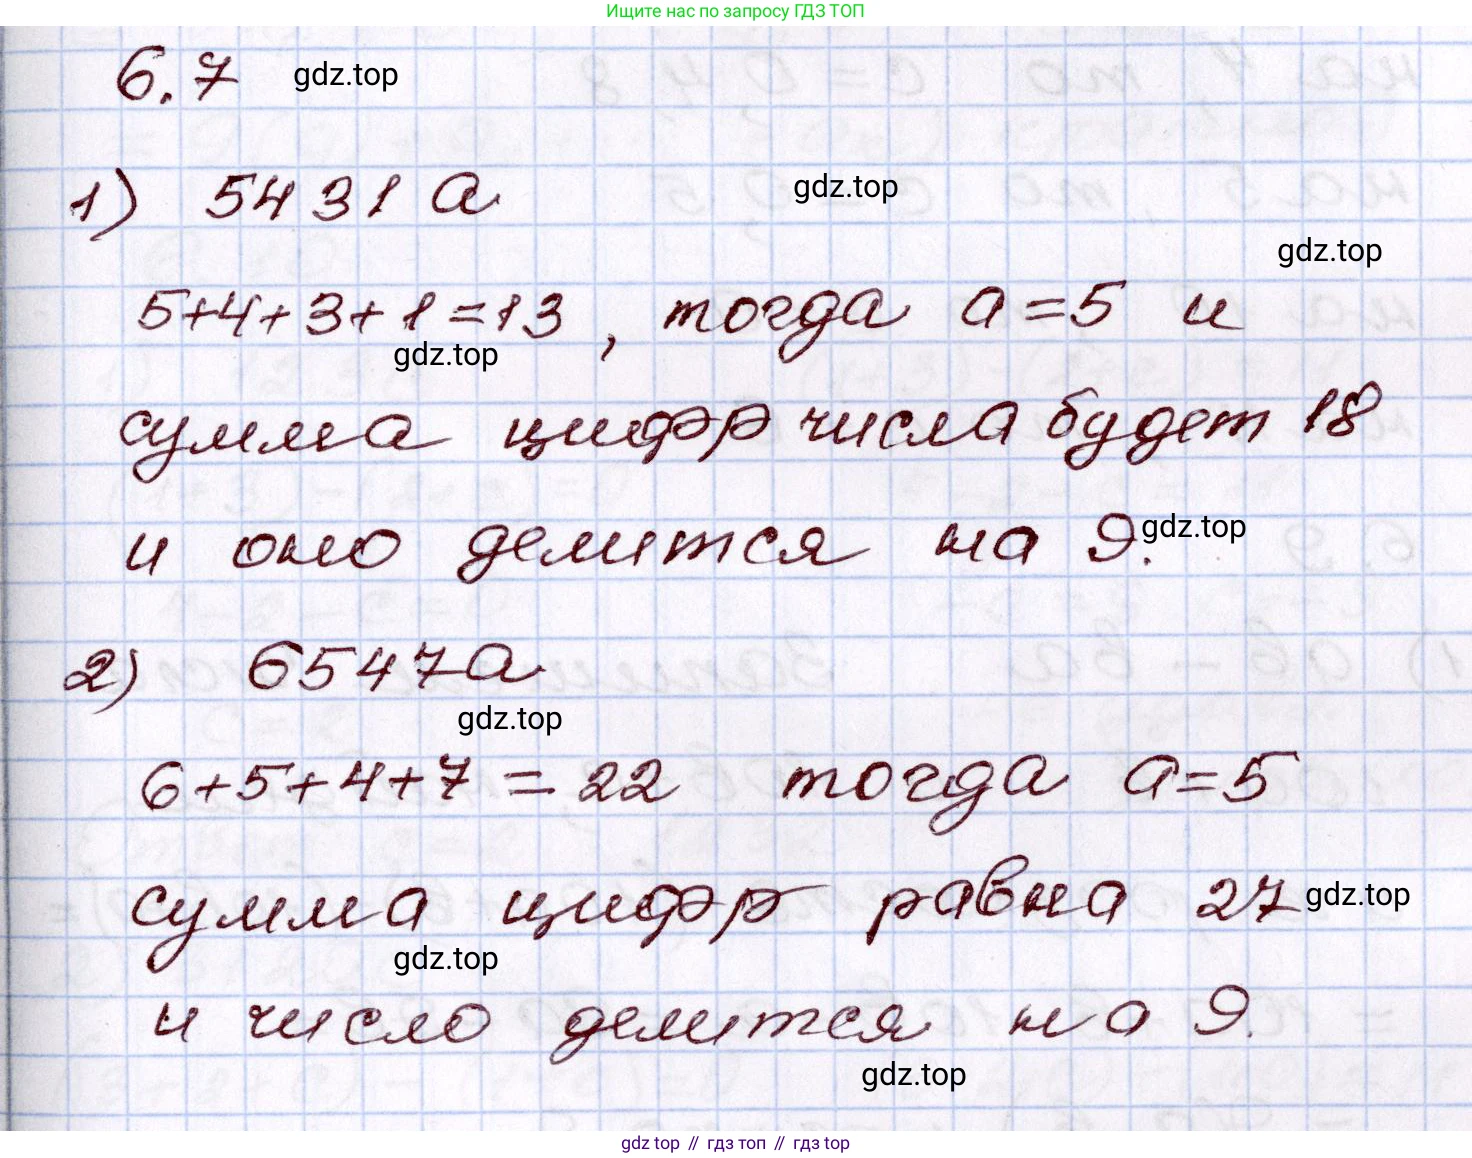 Ищите нас по запросу ГДЗ ТОП
6.7 gdz.top
1) 5431a gdz.top
gdz.top
5+4+3+1=13, тогда a=5 и
gdz.top
сумма цифр числа будет 18
и оно делится на 9. gdz.top
2) 6547a
gdz.top
6+5+4+7=22 тогда a=5
сумма цифр равна 27 gdz.top
gdz.top
и число делится на 9.
gdz.top
gdz top // гдз топ // гдз top